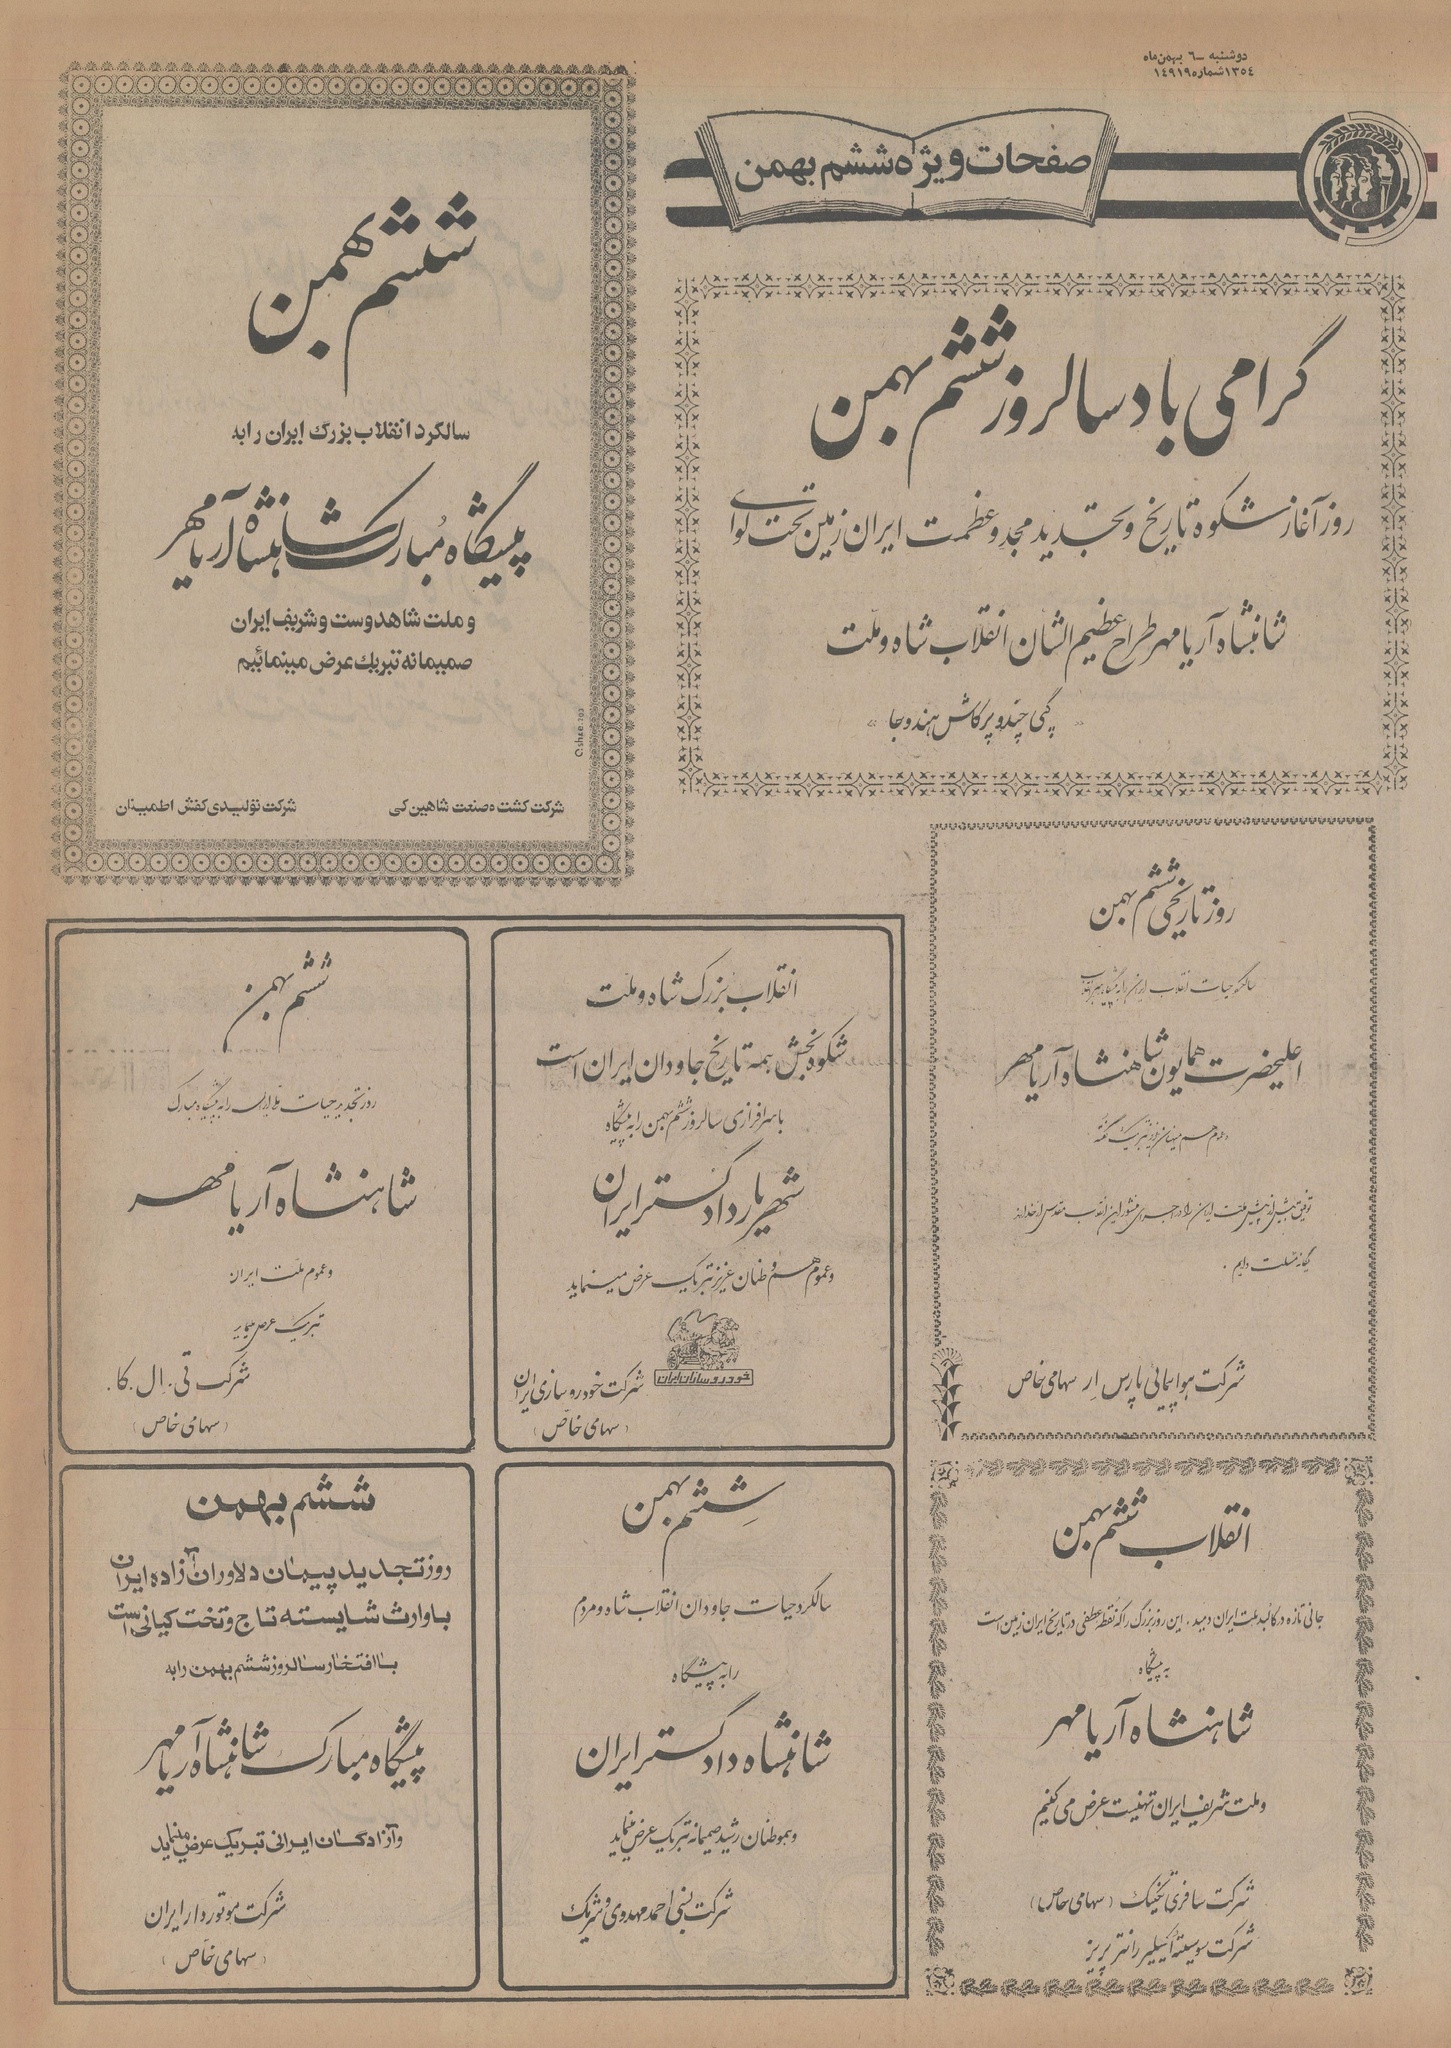 دوشنبه – ٦ بهمن ماه
۱۳۵٤ شماره ۱٤۹۱۹
صفحات ویژه ششم بهمن
گرامی باد سالروز ششم بهمن
روز آغاز شکوه تاریخ و تجدید مجد و عظمت ایران زمین تحت لوای
شاهنشاه آریامهر طراح عظیم الشان انقلاب شاه و ملت
ششم بهمن
سالگرد انقلاب بزرگ ایران را به
پیشگاه مبارک شاهنشاه آریامهر
و ملت شاهدوست و شریف ایران
صمیمانه تبریک عرض مینمائیم
شرکت کشت و صنعت شاهین کی
شرکت تولیدی کفش اطمینان
روز تاریخی ششم بهمن
اعلیحضرت همایون شاهنشاه آریامهر
شرکت هواپیمائی پارس ار سهامی خاص
انقلاب بزرگ شاه و ملت
شکوه بخش همه تاریخ جاودان ایران است
با سرافرازی سالروز ششم بهمن را به پیشگاه
شهریار دادگستر ایران
و عموم هم وطنان عزیز تبریک عرض مینماید
خودروسازان ایران
شرکت خودروسازی ایران
(سهامی خاص)
ششم بهمن
روز تجدید حیات ملی ایران را به پیشگاه مبارک
شاهنشاه آریامهر
و عموم ملت ایران
تبریک عرض مینماید
شرکت تی. ال. کا.
(سهامی خاص)
انقلاب ششم بهمن
جانی تازه در کالبد ملت ایران دمید، این روز بزرگ را که نقطه عطفی در تاریخ ایران زمین است
به پیشگاه
شاهنشاه آریامهر
و ملت شریف ایران تهنیت عرض می کنیم
(سهامی خاص)
ششم بهمن
سالگرد حیات جاودان انقلاب شاه و مردم
را به پیشگاه
شاهنشاه دادگستر ایران
و هموطنان رشید صمیمانه تبریک عرض مینماید
شرکت نسبی احمد مهدوی و شریک
ششم بهمن
روز تجدید پیمان دلاوران آزاده ایران
با وارث شایسته تاج و تخت کیانی است
با افتخار سالروز ششم بهمن را به
پیشگاه مبارک شاهنشاه آریامهر
و آزادگان ایرانی تبریک عرض مینماید
شرکت موتوردار ایران
(سهامی خاص)